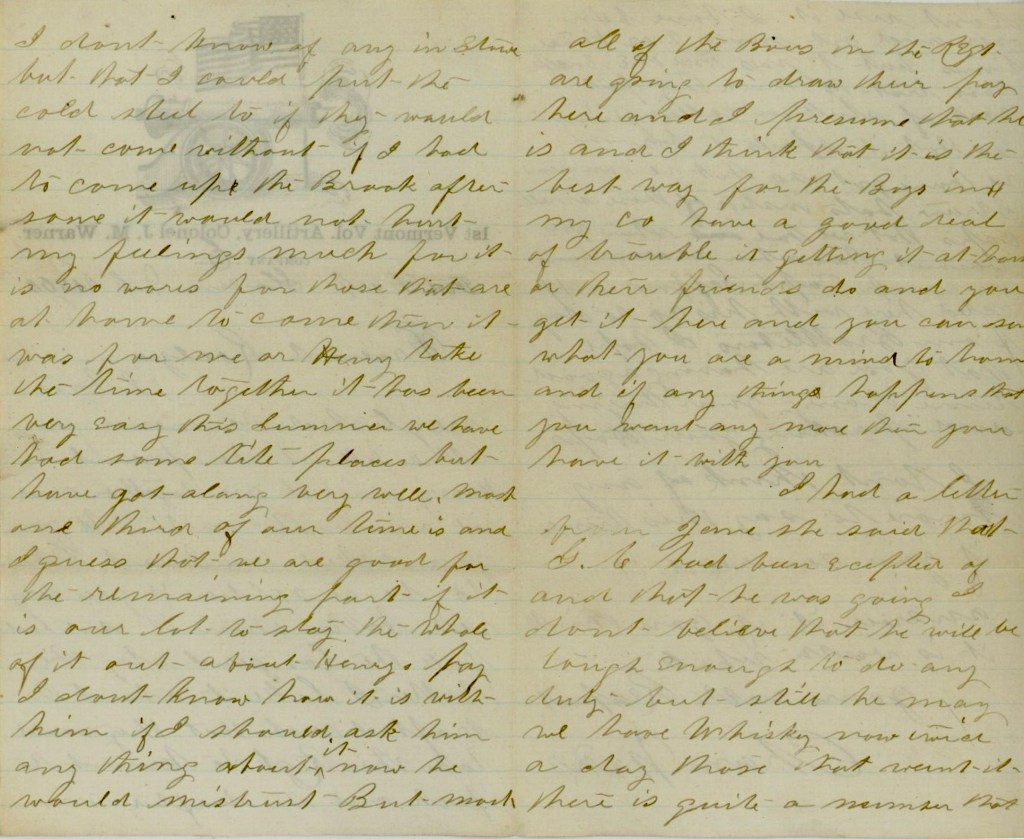 I dont know of any in Stowe
but that I could put the
cold steel to if they would
not come without if I had
to come up the Brook after
some it would not hurt
my feelings much for it
is no wores for those that are
at home to come then it
was for me or Henry take
the time together it has been
very easy this summer we have
had some tite places but
have got along very well, most
one third of our time is and
I guess that we are good for
the remaining part if it
is our lot to stay the whole
of it out about Henrys pay
I dont know how it is with
him if I should ask him
any thing about it now he
would mistrust But most
all of the Boys in the Regt
are going to draw their pay
here and I presume that he
is and I think that it is the
best way for the Boys in
my co have a good deal
of trouble it getting it at home
or their friends do and you
get it here and you can
what you are a mind to home
and if any things happens that
you want any more then you
have it with you
I had a letter
from Jane she said that
had been ecepted of
and that he was going I
dont believe that he will be
tough enough to do any
duty but still he may
we have Whisky now twice
a day those that want it
there is quite a number that
1st Vermont Vol. Artillery, Colonel J. M. Warner.